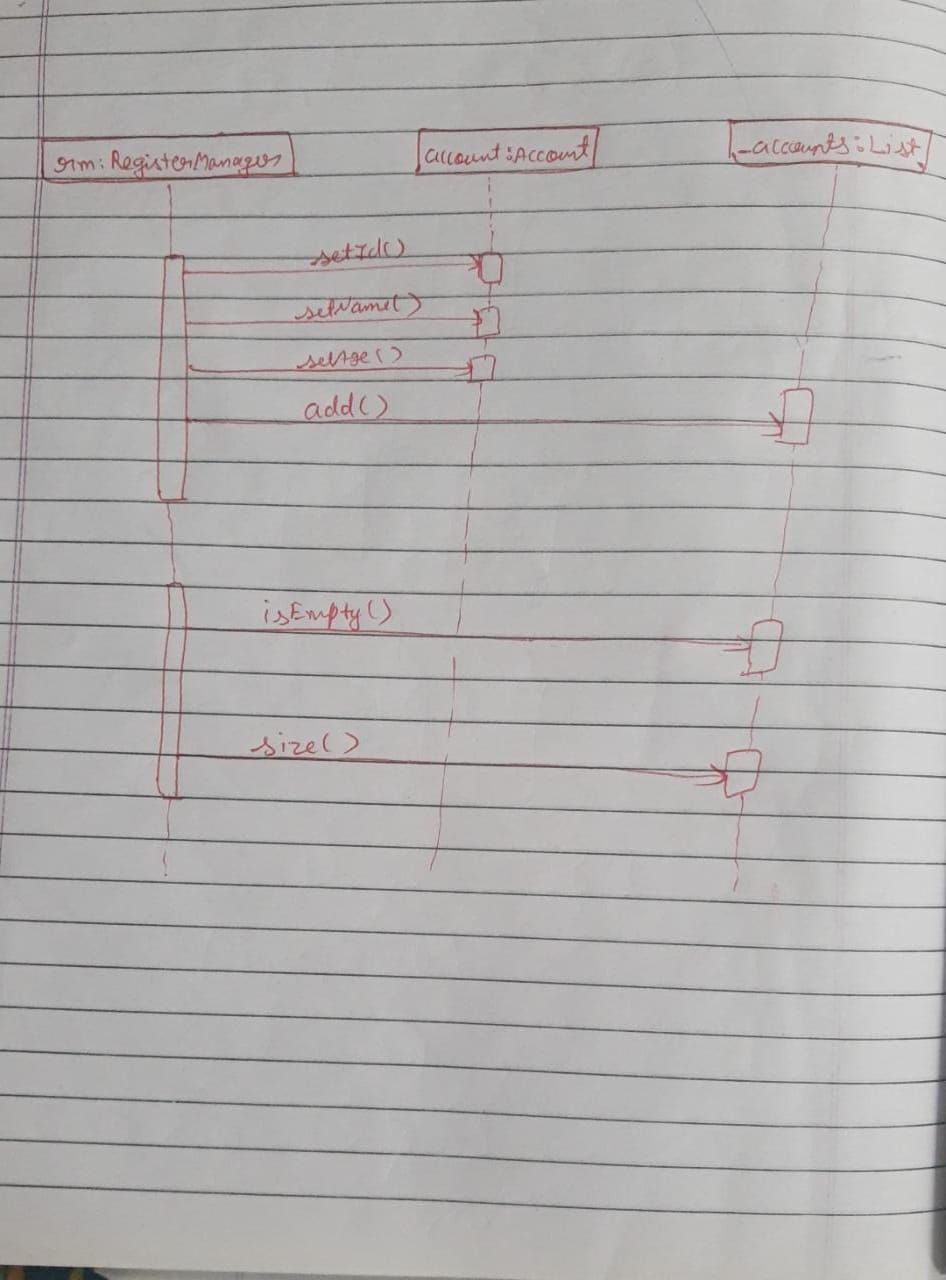 rm:RegisterManager
account:Account
_accounts:List
setId()
setName()
setAge()
add()
isEmpty()
size()